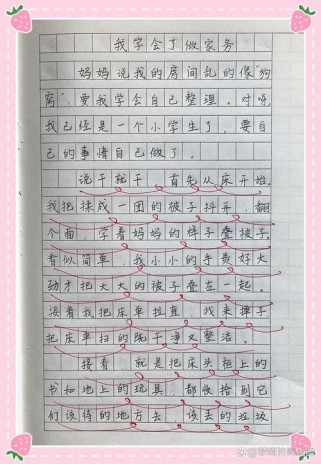 我学会了做家务
妈妈说我的房间乱的像“狗
窝”,要我学会自己整理。对呀,
我已经是一个小学生了,要自
己的事情自己做了。
说干就干,首先从床开始,
我把揉成一团的被子抖开,翻
个面,学着妈妈的样子叠被子,
看似简单,我小小的手费好大
劲才把大大的被子叠在一起。
接着我把床单拉直,找来掸子
把床单扫的既干净又整洁。
接着,就是把床头柜上的
书和地上的玩具,都收拾到它
们该待的地方去,该丢的垃圾